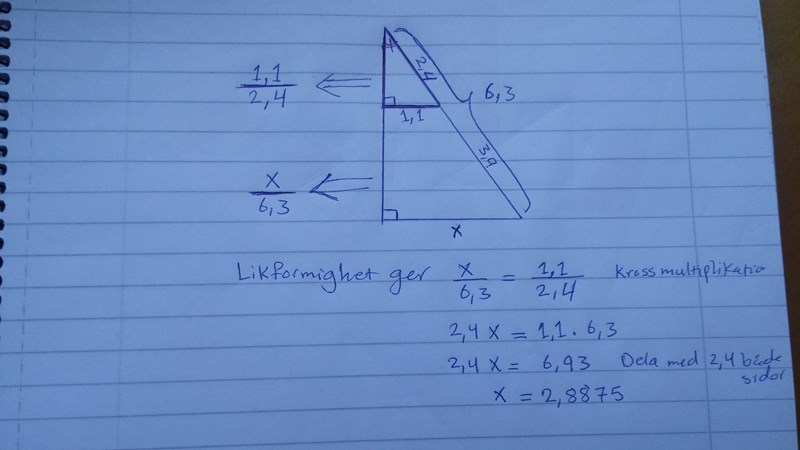 1,1
2,4
2,4
6,3
1,1
3,9
x
6,3
x
Likformighet ger x/6,3 = 1,1/2,4 Krossmultiplikatio
2,4 x = 1,1 · 6,3
2,4 x = 6,93 Dela med 2,4 både
sidor
x = 2,8875